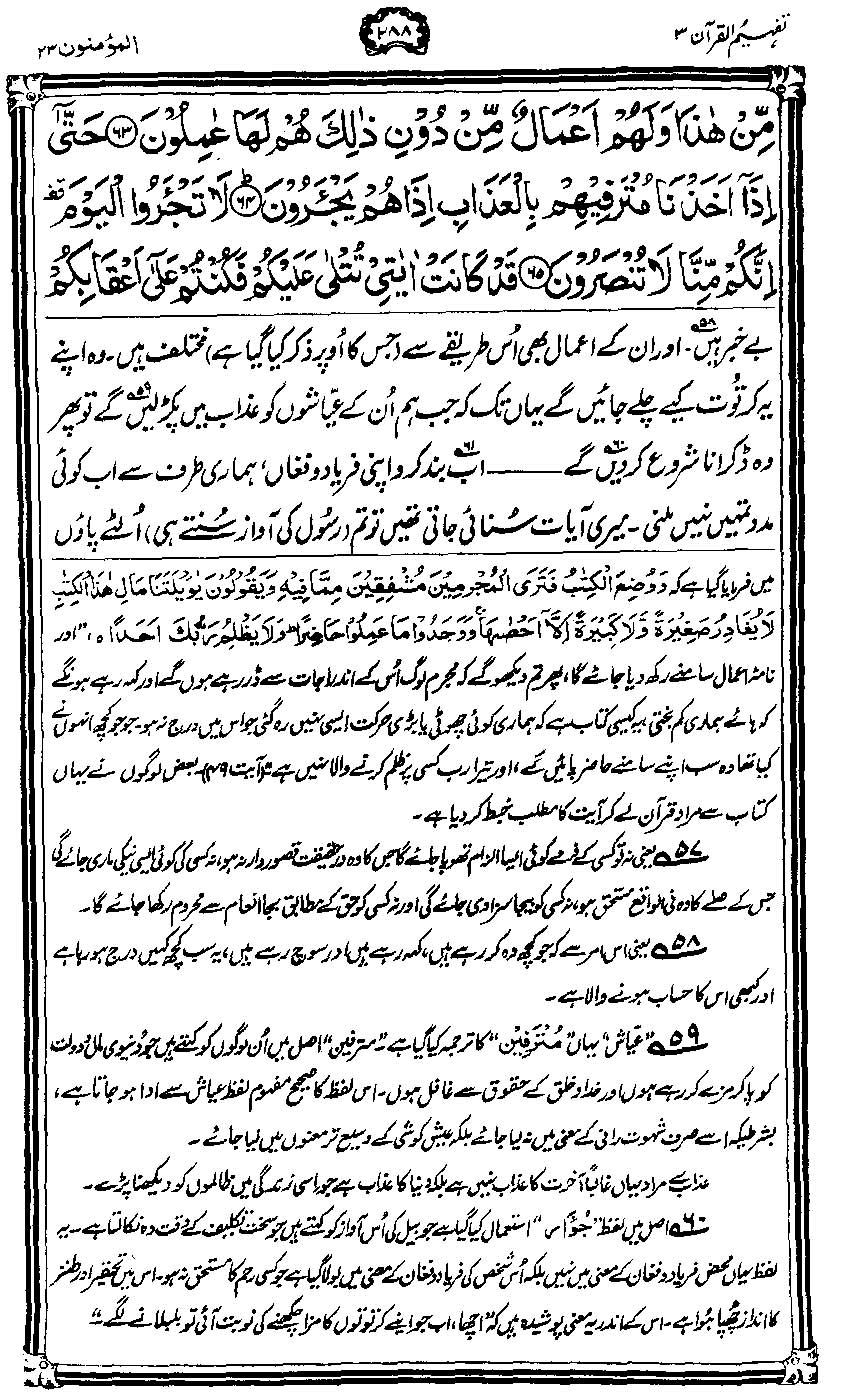 تفہیم القرآن ۳
۲۸۸
المؤمنون ۲۳
مِّنْ هٰذَا وَلَهُمْ اَعْمَالٌ مِّنْ دُوْنِ ذٰلِكَ هُمْ لَهَا عٰمِلُوْنَ ﴿۶۳﴾ حَتّٰۤى
اِذَاۤ اَخَذْنَا مُتْرَفِيْهِمْ بِالْعَذَابِ اِذَا هُمْ يَجْـَٔرُوْنَ ﴿۶۴﴾ لَا تَجْـَٔرُوا الْيَوْمَ
اِنَّكُمْ مِّنَّا لَا تُنْصَرُوْنَ ﴿۶۵﴾ قَدْ كَانَتْ اٰيٰتِيْ تُتْلٰى عَلَيْكُمْ فَكُنْتُمْ عَلٰۤى اَعْقَابِكُمْ
بے خبر ہیں۵۸۔ اور ان کے اعمال بھی اُس طریقے سے (جس کا اُوپر ذکر کیا گیا ہے) مختلف ہیں۔ وہ اپنے
یہ کرتُوت کیے چلے جائیں گے یہاں تک کہ جب ہم اُن کے عیّاشوں کو عذاب میں پکڑ لیں۵۹ گے تو پھر
وہ ڈکرانا شروع کر دیں۶۰ گے ——— اب۶۱ بند کرو اپنی فریاد و فغاں، ہماری طرف سے اب کوئی
مدد تمہیں نہیں ملنی۔ میری آیات سُنائی جاتی تھیں تو تم (رسُول کی آواز سُنتے ہی) اُلٹے پاؤں
میں فرمایا گیا ہے کہ وَوُضِعَ الْكِتٰبُ فَتَرَى الْمُجْرِمِيْنَ مُشْفِقِيْنَ مِمَّا فِيْهِ وَيَقُوْلُوْنَ يٰوَيْلَتَنَا مَالِ هٰذَا الْكِتٰبِ
لَا يُغَادِرُ صَغِيْرَةً وَّلَا كَبِيْرَةً اِلَّاۤ اَحْصٰىهَا وَوَجَدُوْا مَا عَمِلُوْا حَاضِرًا وَلَا يَظْلِمُ رَبُّكَ اَحَدًا ہ، "اور
نامۂ اعمال سامنے رکھ دیا جائے گا، پھر تم دیکھو گے کہ مجرم لوگ اُس کے اندراجات سے ڈر رہے ہوں گے اور کہہ رہے ہونگے
کہ ہائے ہماری کم بختی، یہ کیسی کتاب ہے کہ ہماری کوئی چھوٹی یا بڑی حرکت ایسی نہیں رہ گئی جو اس میں درج نہ ہو۔ جو جو کچھ انہوں نے
کیا تھا وہ سب اپنے سامنے حاضر پائیں گے، اور تیرا رب کسی پر ظلم کرنے والا نہیں ہے" (آیت ۴۹)۔ بعض لوگوں نے یہاں
کتاب سے مراد قرآن لے کر آیت کا مطلب خبط کر دیا ہے۔
۵۷ یعنی نہ تو کسی کے ذمے کوئی ایسا الزام تھوپا جائے گا جس کا وہ درحقیقت قصور وار نہ ہو، نہ کسی کی کوئی ایسی نیکی ماری جائے گی
جس کے صلے کا وہ فی الواقع مستحق ہو، نہ کسی کو بیجا سزا دی جائے گی اور نہ کسی کو حق کے مطابق بجا انعام سے محروم رکھا جائے گا۔
۵۸ یعنی اس امر سے کہ جو کچھ وہ کر رہے ہیں، کہہ رہے ہیں اور سوچ رہے ہیں، یہ سب کچھ کہیں درج ہو رہا ہے
اور کبھی اس کا حساب ہونے والا ہے۔
۵۹ "عیّاش" یہاں "مُتْرَفِیْن" کا ترجمہ کیا گیا ہے۔ "مترفین" اصل میں اُن لوگوں کو کہتے ہیں جو دُنیوی مال و دولت
کو پا کر مزے کر رہے ہوں اور خدا و خلق کے حقوق سے غافل ہوں۔ اس لفظ کا صحیح مفہوم لفظ عیاش سے ادا ہو جاتا ہے،
بشرطیکہ اسے صرف شہوت رانی کے معنی میں نہ لیا جائے بلکہ عیش کوشی کے وسیع تر معنوں میں لیا جائے۔
عذاب سے مراد یہاں غالباً آخرت کا عذاب نہیں ہے بلکہ دُنیا کا عذاب ہے جو اسی زندگی میں ظالموں کو دیکھنا پڑے۔
۶۰ اصل میں لفظ "جُؤَار" استعمال کیا گیا ہے جو بیل کی اُس آواز کو کہتے ہیں جو سخت تکلیف کے وقت وہ نکالتا ہے۔ یہ
لفظ یہاں محض فریاد و فغان کے معنی میں نہیں بلکہ اُس شخص کی فریاد و فغان کے معنی میں بولا گیا ہے جو کسی رحم کا مستحق نہ ہو۔ اس میں تحقیر اور طنز
کا انداز چھپا ہوا ہے۔ اس کے اندر یہ معنی پوشیدہ ہیں کہ "اچھا، اب جو اپنے کرتوتوں کا مزا چکھنے کی نوبت آئی تو بلبلانے لگے۔"